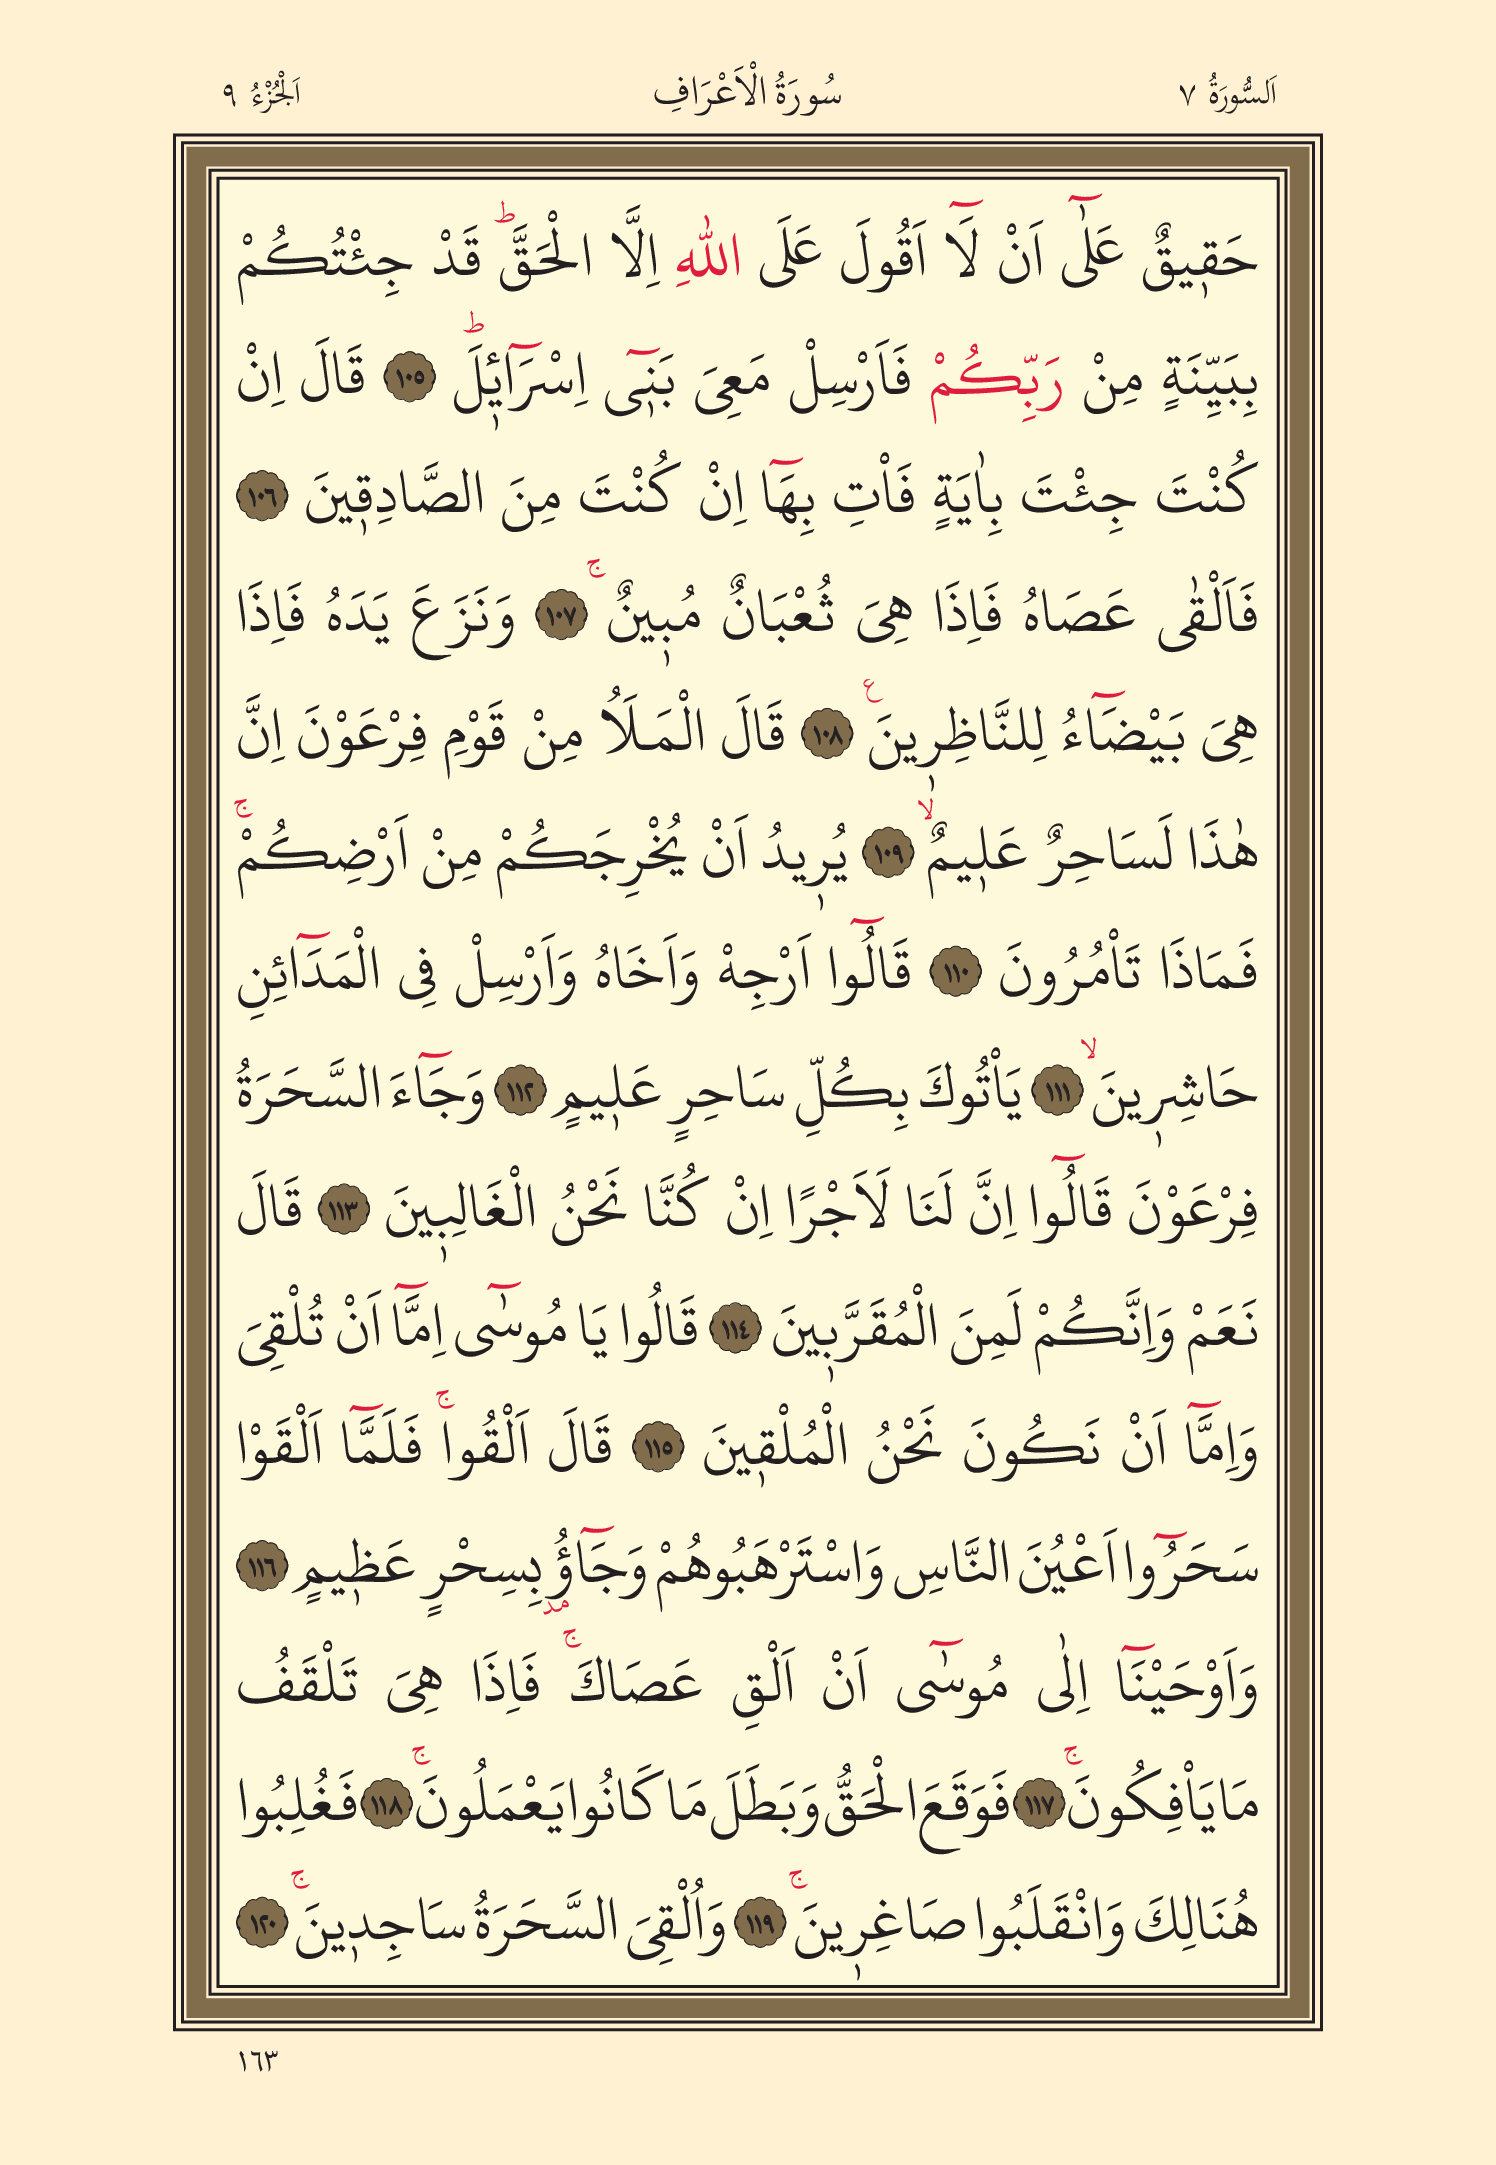 اَلسُّورَةُ ٧ سُورَةُ الْاَعْرَافِ اَلْجُزْءُ ٩
حَقٖيقٌ عَلٰٓى اَنْ لَٓا اَقُولَ عَلَى اللّٰهِ اِلَّا الْحَقَّؕ قَدْ جِئْتُكُمْ
بِبَيِّنَةٍ مِنْ رَبِّكُمْ فَاَرْسِلْ مَعِىَ بَنٖٓى اِسْرَٓائٖلَؕ ١٠٥ قَالَ اِنْ
كُنْتَ جِئْتَ بِاٰيَةٍ فَاْتِ بِهَٓا اِنْ كُنْتَ مِنَ الصَّادِقٖينَ ١٠٦
فَاَلْقٰى عَصَاهُ فَاِذَا هِىَ ثُعْبَانٌ مُبٖينٌۚ ١٠٧ وَنَزَعَ يَدَهُ فَاِذَا
هِىَ بَيْضَٓاءُ لِلنَّاظِرٖينَع ١٠٨ قَالَ الْمَلَاُ مِنْ قَوْمِ فِرْعَوْنَ اِنَّ
هٰذَا لَسَاحِرٌ عَلٖيمٌۙ ١٠٩ يُرٖيدُ اَنْ يُخْرِجَكُمْ مِنْ اَرْضِكُمْۚ
فَمَاذَا تَاْمُرُونَ ١١٠ قَالُٓوا اَرْجِهْ وَاَخَاهُ وَاَرْسِلْ فِى الْمَدَٓائِنِ
حَاشِرٖينَۙ ١١١ يَاْتُوكَ بِكُلِّ سَاحِرٍ عَلٖيمٍ ١١٢ وَجَٓاءَ السَّحَرَةُ
فِرْعَوْنَ قَالُٓوا اِنَّ لَنَا لَاَجْرًا اِنْ كُنَّا نَحْنُ الْغَالِبٖينَ ١١٣ قَالَ
نَعَمْ وَاِنَّكُمْ لَمِنَ الْمُقَرَّبٖينَ ١١٤ قَالُوا يَا مُوسٰٓى اِمَّٓا اَنْ تُلْقِىَ
وَاِمَّٓا اَنْ نَكُونَ نَحْنُ الْمُلْقٖينَ ١١٥ قَالَ اَلْقُواۚ فَلَمَّٓا اَلْقَوْا
سَحَرُٓوا اَعْيُنَ النَّاسِ وَاسْتَرْهَبُوهُمْ وَجَٓاؤُ بِسِحْرٍ عَظٖيمٍ ١١٦
مد
وَاَوْحَيْنَٓا اِلٰى مُوسٰٓى اَنْ اَلْقِ عَصَاكَۚ فَاِذَا هِىَ تَلْقَفُ
مَا يَاْفِكُونَۚ ١١٧ فَوَقَعَ الْحَقُّ وَبَطَلَ مَا كَانُوا يَعْمَلُونَۚ ١١٨ فَغُلِبُوا
هُنَالِكَ وَانْقَلَبُوا صَاغِرٖينَۚ ١١٩ وَاُلْقِىَ السَّحَرَةُ سَاجِدٖينَۚ ١٢٠
١٦٣